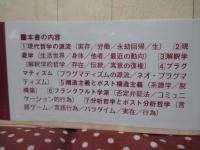 ■本書の内容
①現代哲学の源流（実存/労働/永劫回帰/生）②現
象学（生活世界/身体/他者/最近の動向）③解釈学
（解釈学的哲学/存在/伝統/寓意の復権）④プラグ
マティズム（プラグマティズムの源流/ネオ・プラグマ
ティズム）⑤構造主義とポスト構造主義（系譜学/脱
構築）⑥フランクフルト学派（否定弁証法/コミュニ
ケーション的行為）⑦分析哲学とポスト分析哲学（言
語ゲーム/言語行為/パラダイム/実在/行為）